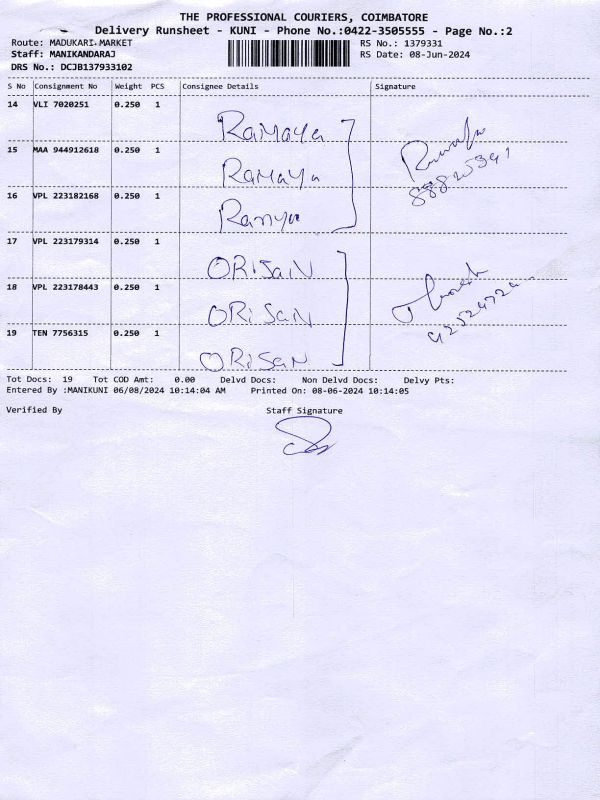 THE PROFESSIONAL COURIERS, COIMBATORE
Delivery Runsheet - KUNI - Phone No.:0422-3505555 - Page No.:2
Route: MADUKARI MARKET RS No.: 1379331
Staff: MANIKANDARAJ RS Date: 08-Jun-2024
DRS No.: DCJB137933102
S No Consignment No Weight PCS Consignee Details Signature
14 VLI 7020251 0.250 1 RaMaya
15 MAA 944912618 0.250 1 RaMaya
16 VPL 223182168 0.250 1
17 VPL 223179314 0.250 1 ORiSaN
18 VPL 223178443 0.250 1 ORiSaN
19 TEN 7756315 0.250 1 ORiSaN
Tot Docs: 19 Tot COD Amt: 0.00 Delvd Docs: Non Delvd Docs: Delvy Pts:
Entered By :MANIKUNI 06/08/2024 10:14:04 AM Printed On: 08-06-2024 10:14:05
Verified By Staff Signature